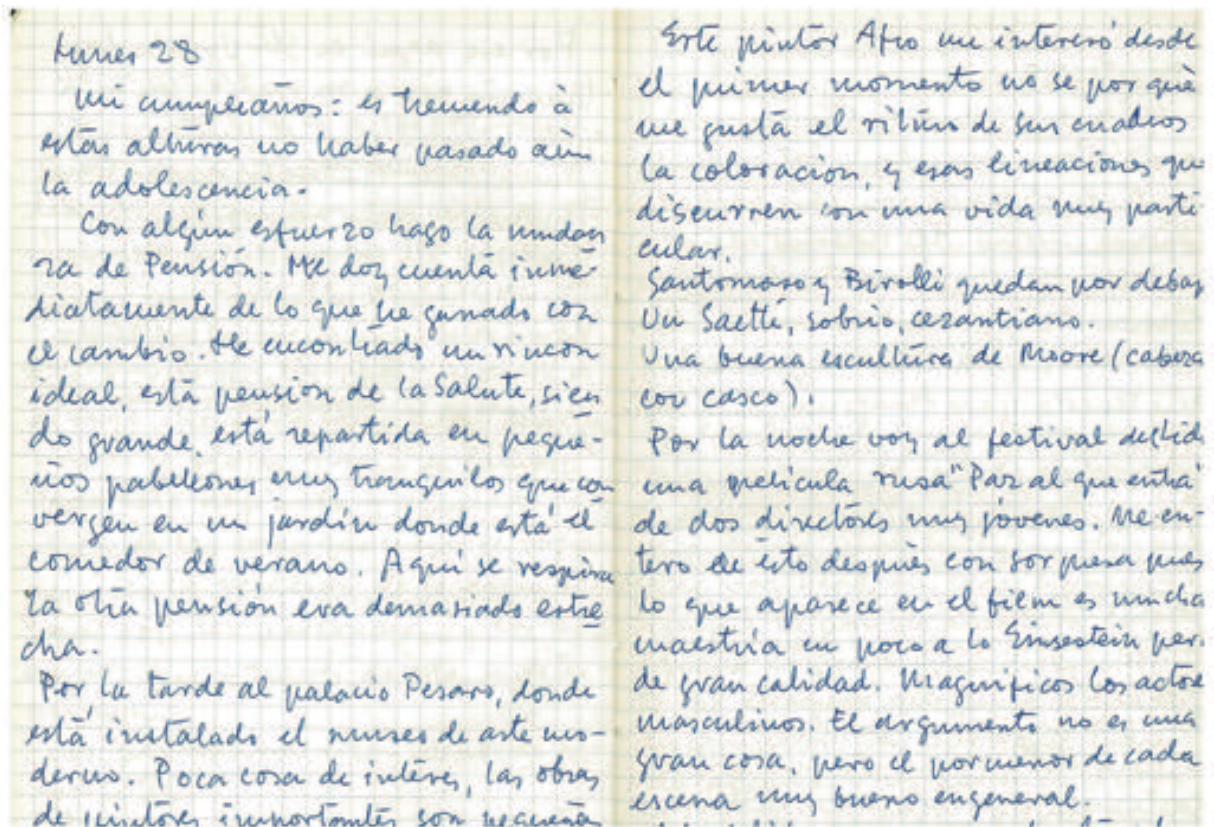 Lunes 28
Mi cumpleaños: es tremendo à
estas alturas no haber pasado aún
la adolescencia.
Con algún esfuerzo hago la mudan
za de Pensión. Me doy cuenta inme-
diatamente de lo que he ganado con
el cambio. He encontrado un rincón
ideal, esta pensión de la Salute, sien
do grande, está repartida en peque-
ños pabellones muy tranquilos que con
vergen en un jardín donde está el
comedor de verano. Aquí se respira
la otra pensión era demasiado estre
cha.
Por la tarde al palacio Pesaro, donde
está instalado el museo de arte mo-
derno. Poca cosa de interés, las obras
de pintores importantes son pequeñas
Este pintor Afro me interesó desde
el primer momento no se por qué
me gusta el ritmo de sus cuadros
la coloración, y esas lineaciones que
discurren con una vida muy parti
cular.
Santomaso y Birolli quedan por debajo
Un Saetti, sobrio, cezantiano.
Una buena escultura de Moore (cabeza
con casco).
Por la noche voy al festival del Lid
una pelicula rusa "Paz al que entra
de dos directores muy jóvenes. Me en-
tero de ésto después con sorpresa pues
lo que aparece en el film es mucha
maestría un poco a lo Einsestein per
de gran calidad. Magníficos los actore
masculinos. El argumento no es una
gran cosa, pero el pormenor de cada
escena muy bueno en general.